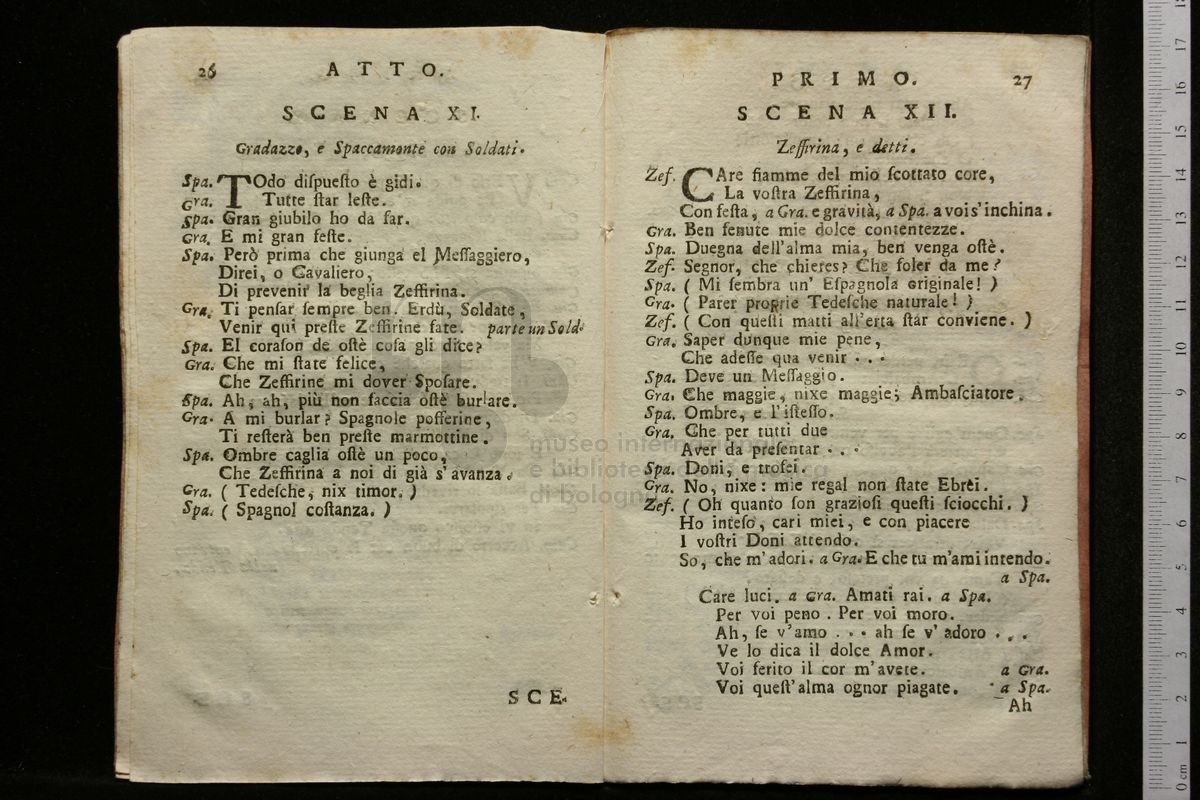 26 ATTO.
SCENA XI.
Gradazzo, e Spaccamonte con Soldati.
Spa. TOdo diſpueſto è gidi.
Gra. Tutte ſtar leſte.
Spa. Gran giubilo ho da far.
Gra. E mi gran feſte.
Spa. Però prima che giunga el Meſſaggiero,
Direi, o Cavaliero,
Di prevenir la beglia Zeffirina.
Gra. Ti penſar ſempre ben. Erdù, Soldate,
Venir quì preſte Zeffirine fate. parte un Sold.
Spa. El coraſon de oſtè coſa gli dice?
Gra. Che mi ſtate felice,
Che Zeffirine mi dover Spoſare.
Spa. Ah, ah, più non faccia oſtè burlare.
Gra. A mi burlar? Spagnole poſferine,
Ti reſterà ben preſte marmottine.
Spa. Ombre caglia oſtè un poco,
Che Zeffirina a noi di già s'avanza.
Gra. ( Tedeſche, nix timor. )
Spa. ( Spagnol coſtanza. )
SCE.
PRIMO. 27
SCENA XII.
Zeffirina, e detti.
Zef. CAre fiamme del mio ſcottato core,
La voſtra Zeffirina,
Con feſta, a Gra. e gravità, a Spa. a voi s'inchina.
Gra. Ben fenute mie dolce contentezze.
Spa. Duegna dell'alma mia, ben venga oſtè.
Zef. Segnor, che chieres? Che foler da me?
Spa. ( Mi ſembra un' Eſpagnola originale! )
Gra. ( Parer proprie Tedeſche naturale! )
Zef. ( Con queſti matti all'erta ſtar conviene. )
Gra. Saper dunque mie pene,
Che adeſſe qua venir . . .
Spa. Deve un Meſſaggio.
Gra. Che maggie, nixe maggie; Ambaſciatore.
Spa. Ombre, e l'iſteſſo.
Gra. Che per tutti due
Aver da preſentar . . .
Spa. Doni, e trofei.
Gra. No, nixe: mie regal non ſtate Ebrei.
Zef. ( Oh quanto ſon grazioſi queſti ſciocchi. )
Ho inteſo, cari miei, e con piacere
I voſtri Doni attendo.
So, che m'adori. a Gra. E che tu m'ami intendo.
a Spa.
Care luci. a Gra. Amati rai. a Spa.
Per voi peno. Per voi moro.
Ah, ſe v'amo . . . ah ſe v'adoro . . .
Ve lo dica il dolce Amor.
Voi ferito il cor m'avete. a Gra.
Voi queſt'alma ognor piagate. a Spa.
Ah
museo internazionale
e biblioteca della musica
di bologna
17
16
15
14
13
12
11
10
9
8
7
6
5
4
3
2
1
0 cm